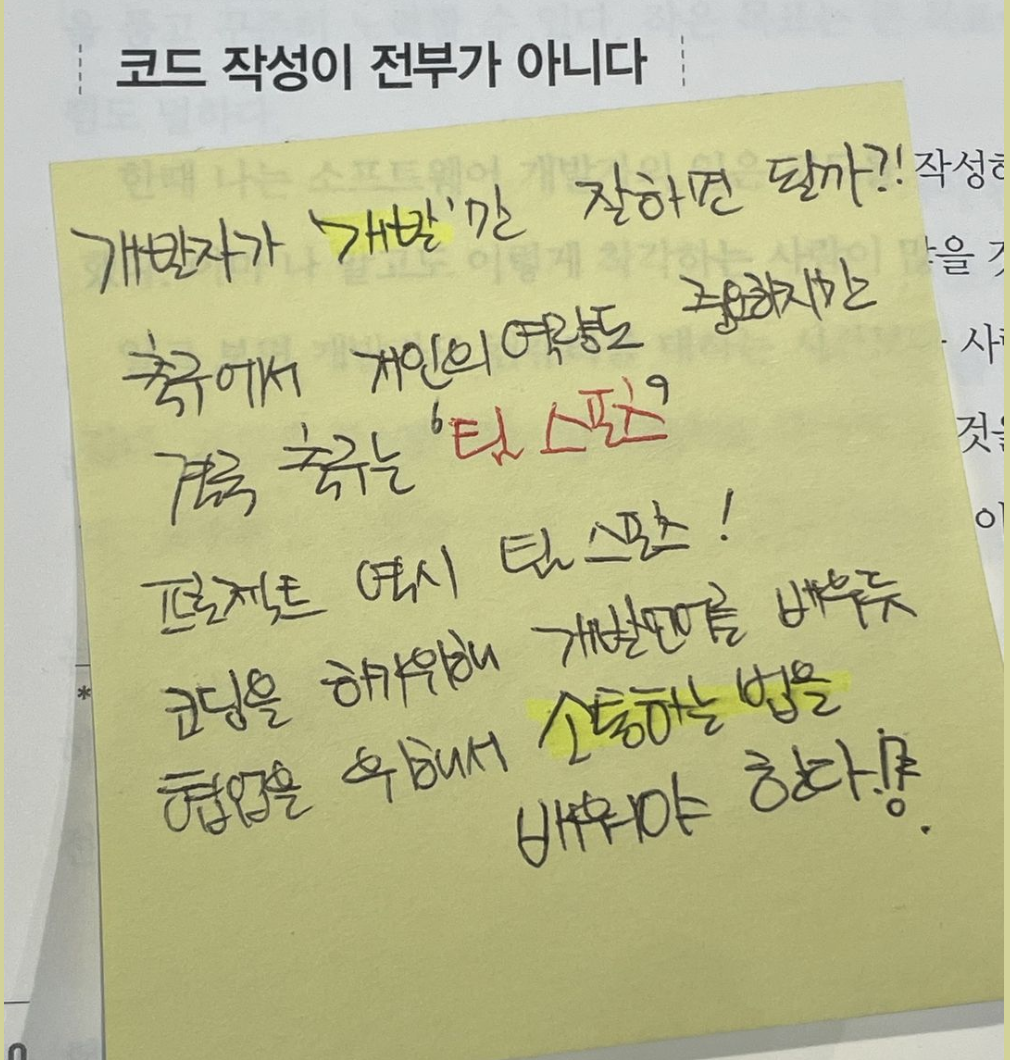 코드 작성이 전부가 아니다
개발자가 '개발'만 잘하면 될까?!
작성하
축구에서 개인의 역량도 중요하지만
결국 축구는 '팀 스포츠'
프로젝트 역시 팀 스포츠!
코딩을 하기위해 개발언어를 배우듯
협업을 위해서 소통하는 법을
배워야 한다!
*